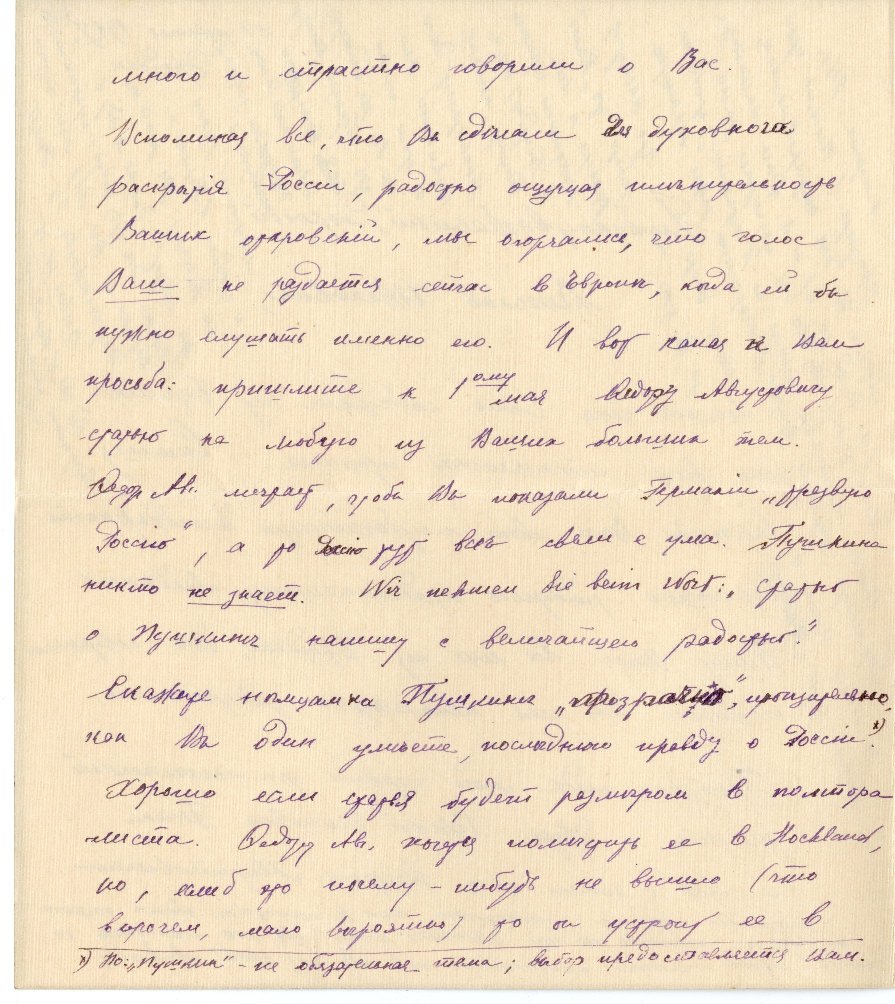 много и страстно говорили о Вас.
Вспоминая все, что Вы сдѣлали для духовного
раскрытія Россіи, радостно ощущая цѣлительность
Ваших откровеній, мы огорчались, что голос
Ваш не раздается сейчас в Европѣ, когда ей бы
нужно слушать именно его. И вот какая к Вам
просьба: пришлите к 1ому мая Федору Августовичу
статью на любую из Ваших больших тем.
Федор Авг. мечтает, чтобы Вы показали Германіи „трезвую
Россію", а то тут всѣ свели с ума. Пушкина
никто не знает. Wir nehmen Sie beim Wort: „статью
о Пушкинѣ напишу с величайшею радостью."
Скажите нѣмцам на Пушкинѣ „прозрачно", проницательно,
как Вы один умѣете, послѣднюю правду о Россіи.x)
Хорошо если статья будет размѣром в полтора
листа. Федор Авг. хочет помѣстить ее в Hochland,
но, еслиб это почему-нибудь не вышло (что
впрочем, мало вѣроятно) то он устроит ее в
x) Но: „Пушкин" - не обязательная тема; выбор предоставляется Вам.